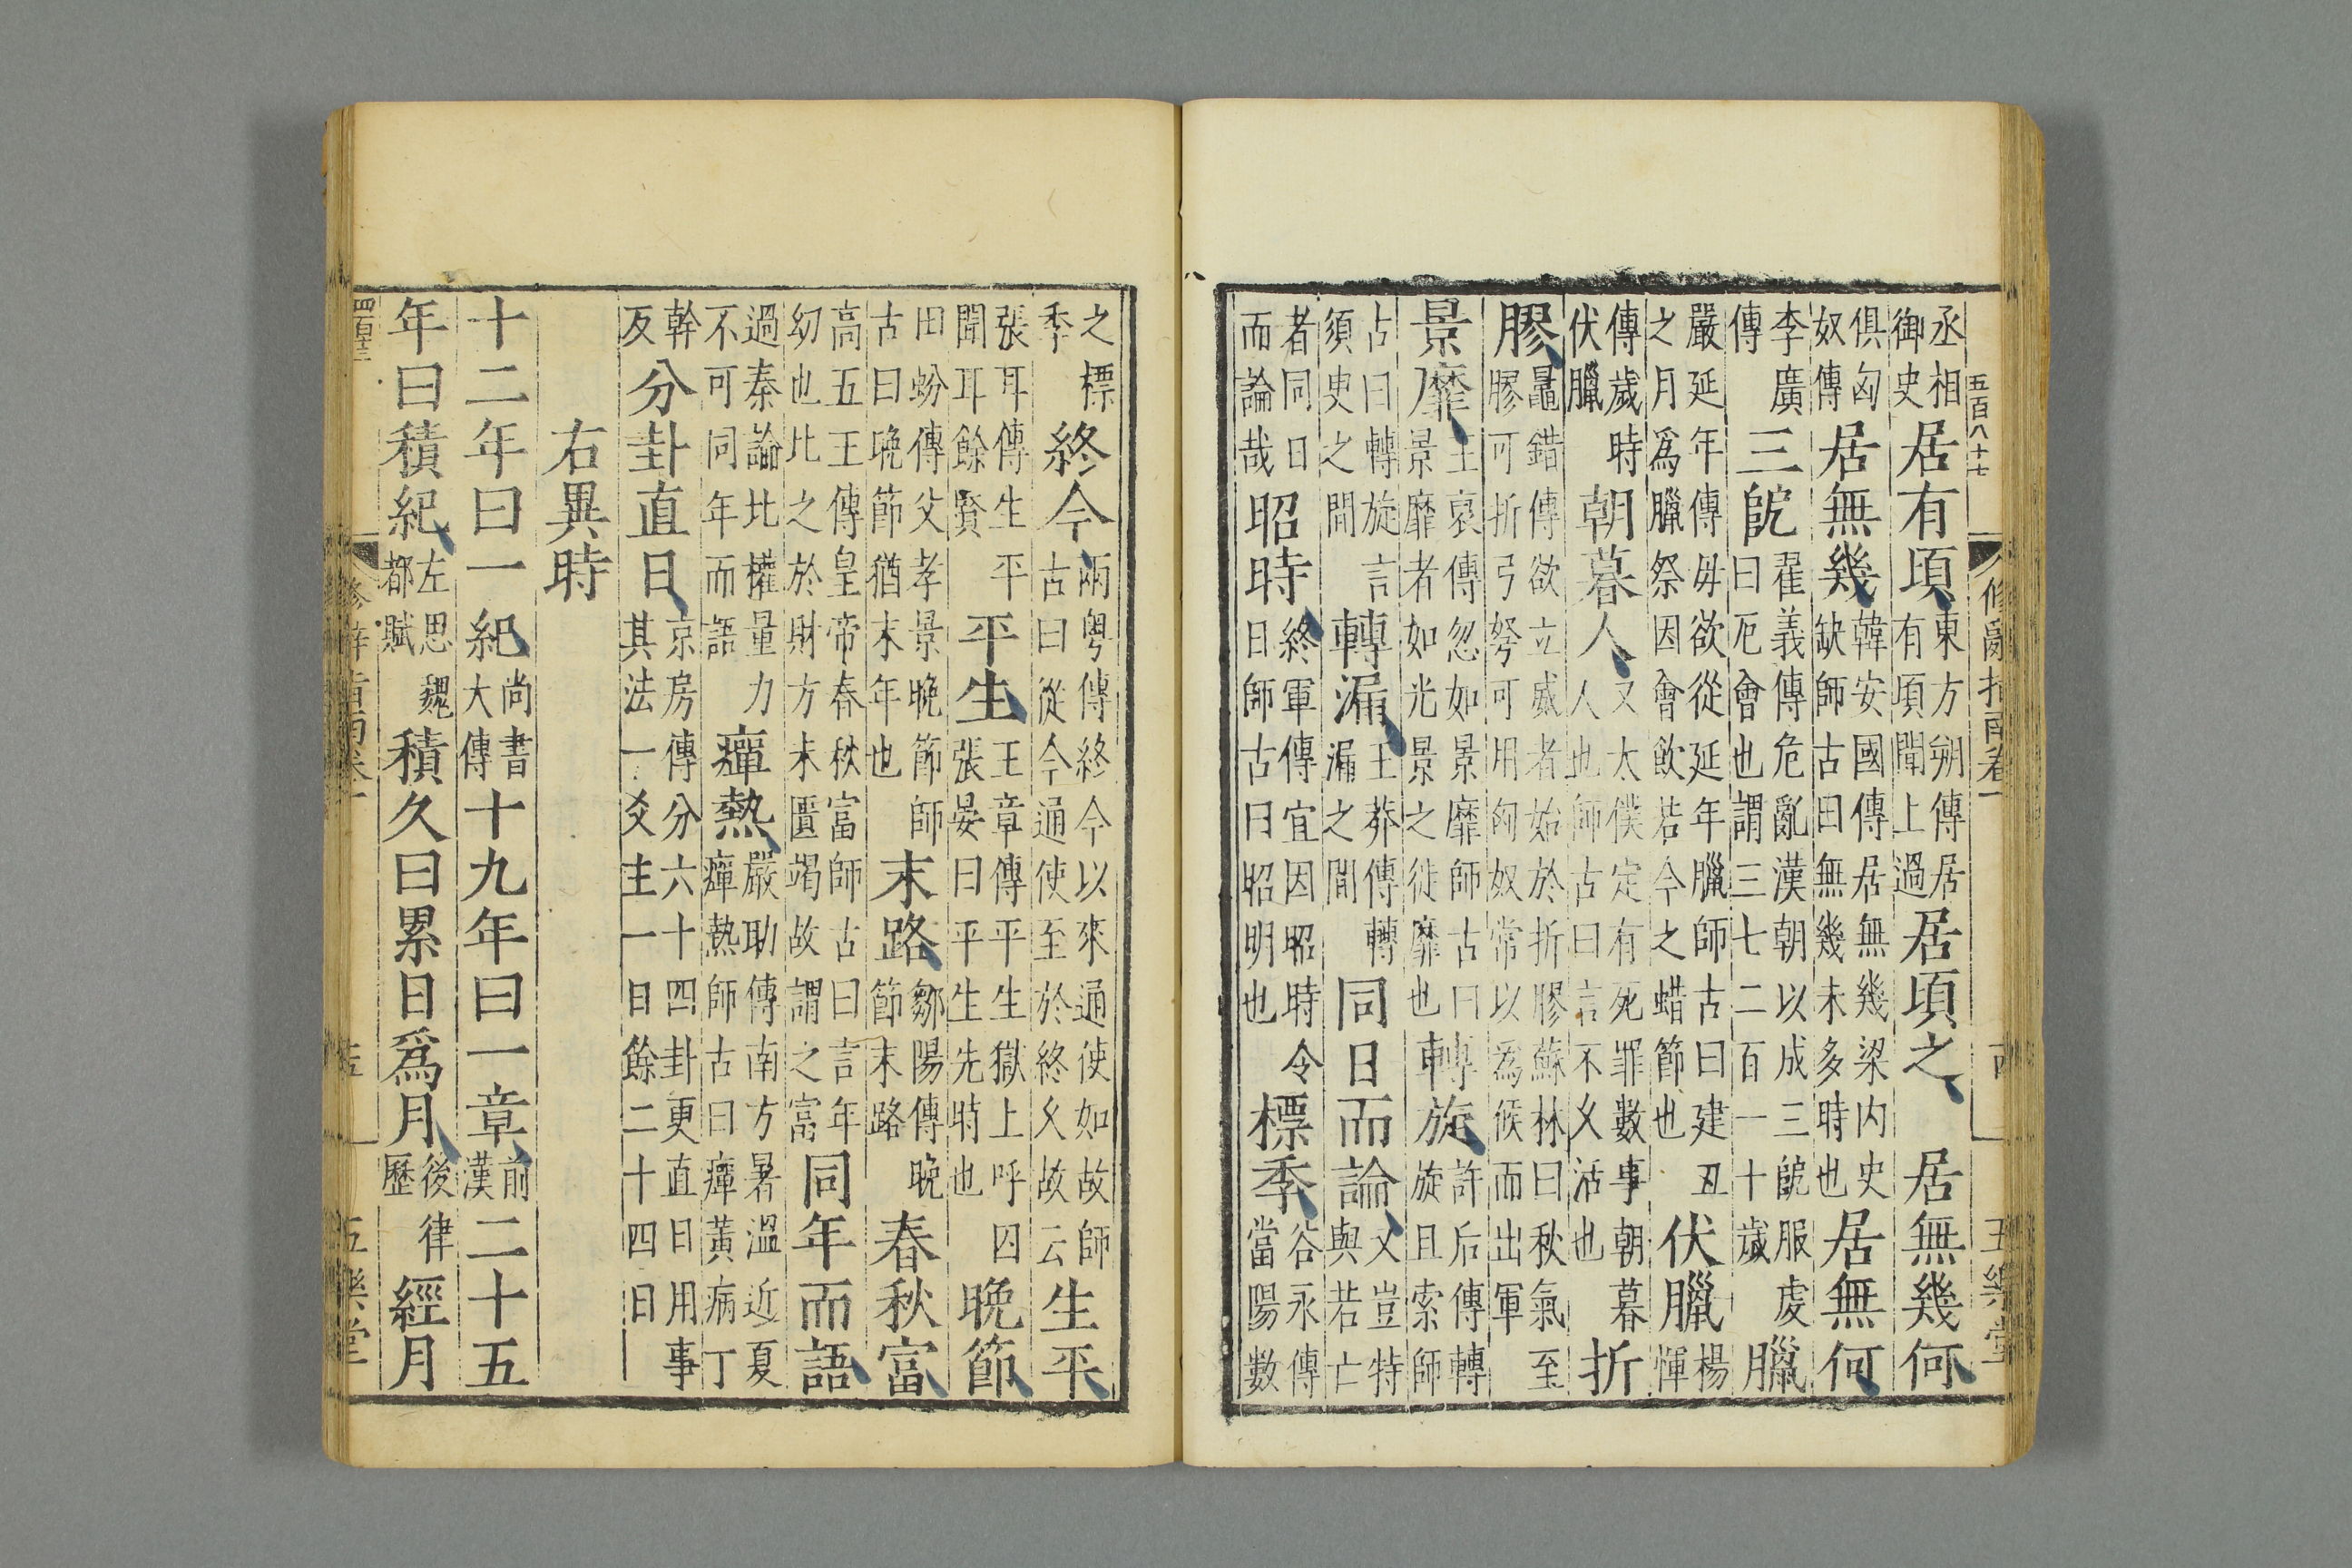 五百八十七 修辭指南卷一 五樂堂
丞相御史居有頃東方朔傳居有頃聞上過居頃之 居無幾何
俱匈奴傳居無幾韓安國傳居無幾梁内史缺師古曰無幾未多時也居無何
李廣傳三阸翟義傳危亂漢朝以成三阸服虔曰厄會也謂三七二百一十歲臘
嚴延年傳毋欲從延年臘師古曰建丑之月爲臘祭因會飲若今之蜡節也伏臘楊惲
傳歲時伏臘朝暮人又太僕定有死罪數事朝暮人也師古曰言不久活也折
膠鼂錯傳欲立威者始於折膠蘇林曰秋氣至膠可折弓弩可用匈奴常以爲候而出軍
景靡王裒傳忽如景靡師古曰景靡者如光景之徙靡也轉旋許后傳轉旋且索師
古曰轉旋言須史之間轉漏王莽傳轉漏之間同日而論又豈特與若亡
者同日而論哉昭時終軍傳宜因昭時令日師古曰昭明也標季谷永傳當陽數
之標季終今兩粤傳終今以來通使如故師古曰從今通使至於終久故云生平
張耳傳生平聞耳餘賢平生王章傳平生獄上呼囚張晏曰平生先時也晚節
田蚡傳父孝景晚節師古曰晚節猶末年也末路鄒陽傳晚節末路春秋富
高五王傳皇帝春秋富師古曰言年幼也比之於財方未匱竭故謂之富同年而語
過秦論比權量力不可同年而語癉熱嚴助傳南方暑溫近夏癉熱師古曰癉黃病丁
幹反分卦直日京房傳分六十四卦更直日用事其法一爻主一日餘二十四日
右異時
十二年曰一紀尚書大傳十九年曰一章前漢二十五
年曰積紀左思魏都賦積久曰累日爲月後律歷經月
五樂堂